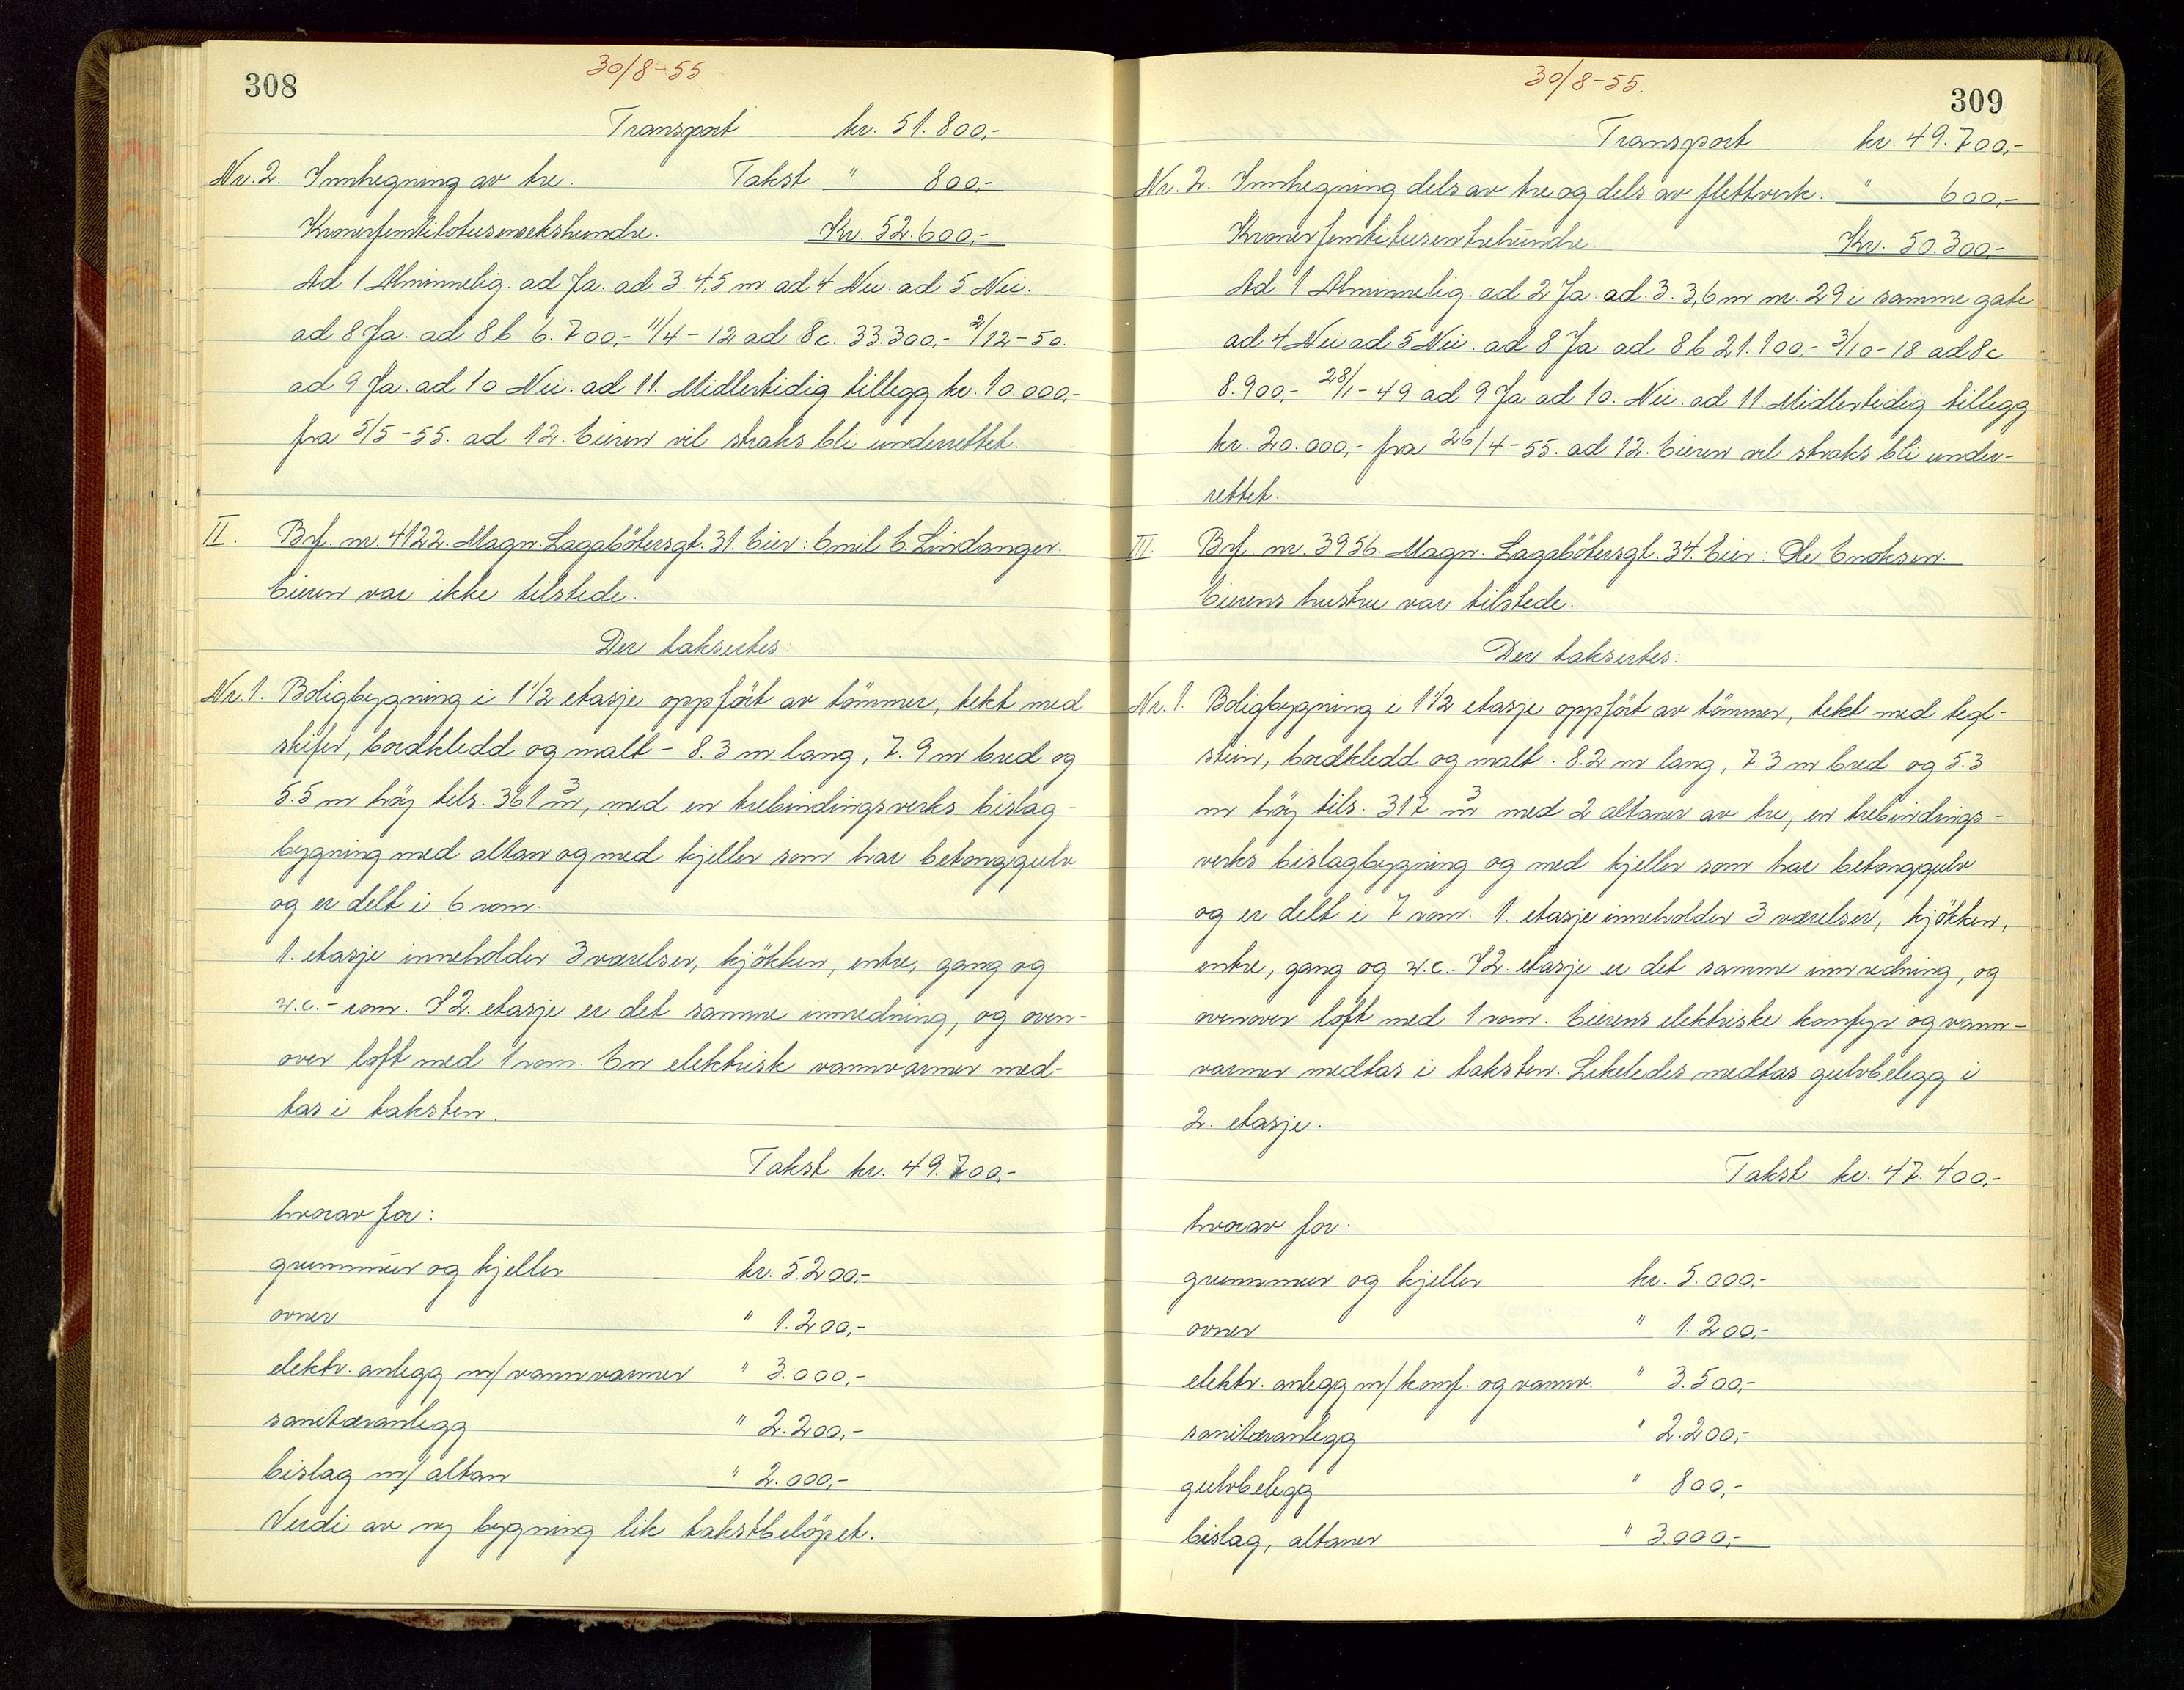 308
30/8-55
Transport kr. 51.800,-
Nr. 2. Innhegning av tre. Takst " 800,-
Kronerfemtitotusenseks hundre. Kr. 52.600,-
Ad 1 Alminnelig. ad Ja. ad 3. 4,5 m. ad 4 Nei. ad 5 Nei.
ad 8 Ja. ad 8b 6.700,- 11/4-12 ad 8c. 33.300,- 2/12-50.
ad 9 Ja. ad 10 Nei. ad 11. Midlertidig tillegg kr. 10.000,-
fra 5/5-55. ad 12. Eieren vil straks bli underrettet.
II. Brf. nr. 4122. Magn. Lagabötersgt. 31. Eier: Emil E. Lindanger.
Eieren var ikke tilstede.
Der taksertes:
Nr. 1. Boligbygning i 1 1/2 etasje oppfört av tömmer, tekt med
skifer, bordkledd og malt - 8.3 m lang, 7.9 m bred og
5.5 m höy tils. 361 m³, med en trebindingsverks bislag-
bygning med altan og med kjeller som har betonggulv
og er delt i 6 rom.
1. etasje inneholder 3 værelser, kjökken, entre, gang og
w.c.- rom. I 2. etasje er det samme innredning, og oven-
over loft med 1 rom. En elektrisk vannvarmer med-
tas i taksten.
Takst kr. 49.700,-
hvorav for:
grunnmur og kjeller kr. 5.200,-
ovner " 1.200,-
elektr. anlegg m/ vannvarmer " 3.000,-
sanitæranlegg " 2.200,-
bislag m/ altan " 2.000,-
Verdi av ny bygning lik takstbelöpet.
30/8-55.
309
Transport kr. 49.700,-
Nr. 2. Innhegning dels av tre og dels av flettverk. " 600,-
Kroner femtitusentrehundre Kr. 50.300,-
Ad 1 Alminnelig. ad 2 Ja. ad. 3. 3,6 m nr. 29 i samme gate
ad 4 Nei ad 5 Nei. ad 8 Ja. ad 8b 21.100,- 3/10-18 ad 8c
8.900,- 28/1-49. ad 9 Ja ad 10. Nei. ad 11. Midlertidig tillegg
kr. 20.000,- fra 26/4-55. ad 12. Eieren vil straks bli under-
rettet.
III. Brf. nr. 3956. Magn. Lagabötersgt. 34. Eier: Ole Enoksen.
Eierens hustru var tilstede.
Der takseertes:
Nr. 1. Boligbygning i 1 1/2 etasje oppfört av tömmer, tekt med tegl-
stein, bordkledd og malt. 8.2 m lang, 7.3 m bred og 5.3
m höy tils. 317 m³ med 2 altaner av tre, en trebindings-
verks bislagbygning og med kjeller som har betonggulv
og er delt i 7 rom. 1. etasje inneholder 3 værelser, kjökken,
entre, gang og w.c. I 2. etasje er det samme innredning, og
ovenover loft med 1 rom. Eierens elektriske komfyr og vann-
varmer medtas i taksten. Likeledes medtas gulvbelegg i
2. etasje.
Takst kr. 47.400,-
hvorav for:
grunnmur og kjeller kr. 5.000,-
ovner " 1.200,-
elektr. anlegg m/ komf. og vannv. " 3.500,-
sanitæranlegg " 2.200,-
gulvbelegg " 800,-
bislag, altaner " 3.000,-